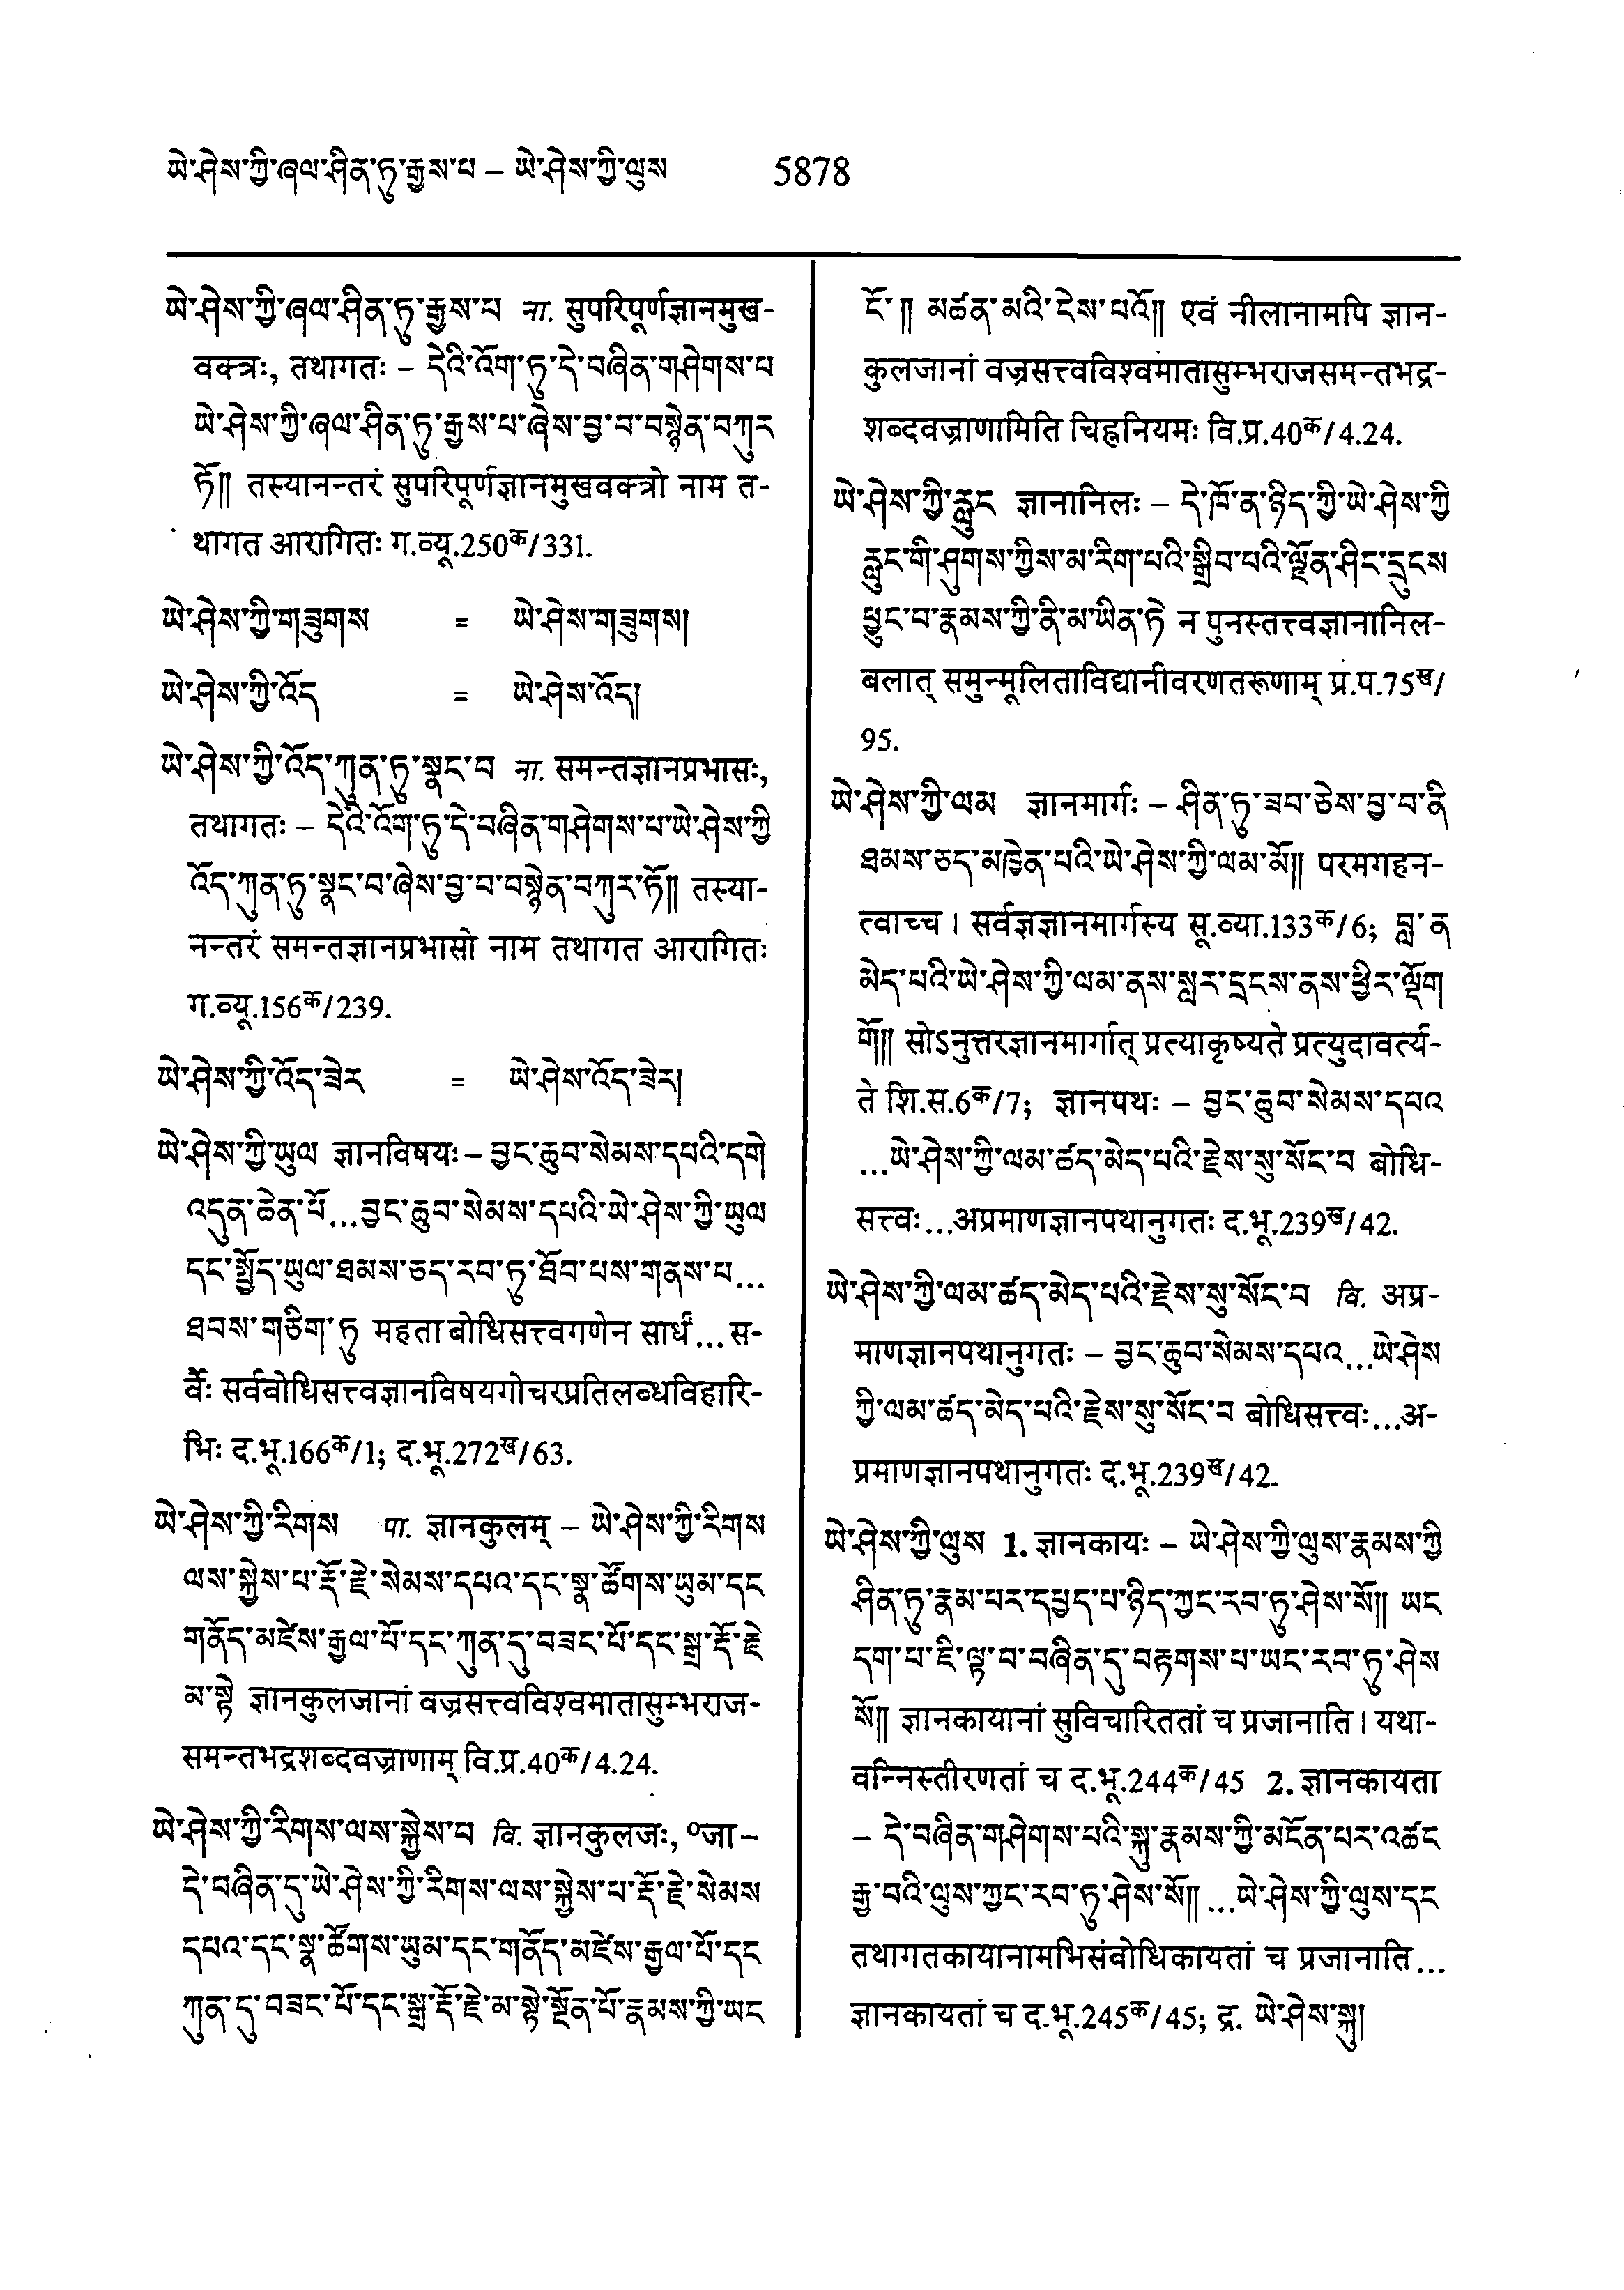 ཡེ་ཤེས་ཀྱི་ཞལ་ཤིན་ཏུ་རྒྱས་པ – ཡེ་ཤེས་ཀྱི་ལུས 5878
ཡེ་ཤེས་ཀྱི་ཞལ་ཤིན་ཏུ་རྒྱས་པ ना. सुपरिपूर्णज्ञानमुख-
वक्त्रः, तथागतः – དེའི་འོག་ཏུ་དེ་བཞིན་གཤེགས་པ
ཡེ་ཤེས་ཀྱི་ཞལ་ཤིན་ཏུ་རྒྱས་པ་ཞེས་བྱ་བ་བསྙེན་བཀུར
ཏོ༎ तस्यानन्तरं सुपरिपूर्णज्ञानमुखवक्त्रो नाम त-
थागत आरागितः ग.व्यू.250क/331.
ཡེ་ཤེས་ཀྱི་གཟུགས = ཡེ་ཤེས་གཟུགས།
ཡེ་ཤེས་ཀྱི་འོད = ཡེ་ཤེས་འོད།
ཡེ་ཤེས་ཀྱི་འོད་ཀུན་ཏུ་སྣང་བ ना. समन्तज्ञानप्रभासः,
तथागतः – དེའི་འོག་ཏུ་དེ་བཞིན་གཤེགས་པ་ཡེ་ཤེས་ཀྱི
འོད་ཀུན་ཏུ་སྣང་བ་ཞེས་བྱ་བ་བསྙེན་བཀུར་ཏོ༎ तस्या-
नन्तरं समन्तज्ञानप्रभासो नाम तथागत आरागितः
ग.व्यू.156क/239.
ཡེ་ཤེས་ཀྱི་འོད་ཟེར = ཡེ་ཤེས་འོད་ཟེར།
ཡེ་ཤེས་ཀྱི་ཡུལ ज्ञानविषयः – བྱང་ཆུབ་སེམས་དཔའི་དགེ
འདུན་ཆེན་པོ...བྱང་ཆུབ་སེམས་དཔའི་ཡེ་ཤེས་ཀྱི་ཡུལ
དང་སྤྱོད་ཡུལ་ཐམས་ཅད་རབ་ཏུ་ཐོབ་པས་གནས་པ...
ཐབས་གཅིག་ཏུ महता बोधिसत्त्वगणेन सार्धं...स-
र्वैः सर्वबोधिसत्त्वज्ञानविषयगोचरप्रतिलब्धविहारि-
भिः द.भू.166क/1; द.भू.272ख/63.
ཡེ་ཤེས་ཀྱི་རིགས पा. ज्ञानकुलम् – ཡེ་ཤེས་ཀྱི་རིགས
ལས་སྐྱེས་པ་རྡོ་རྗེ་སེམས་དཔའ་དང་སྣ་ཚོགས་ཡུམ་དང
གནོད་མཛེས་རྒྱལ་པོ་དང་ཀུན་དུ་བཟང་པོ་དང་སྒྲ་རྡོ་རྗེ
མ་སྟེ ज्ञानकुलजानां वज्रसत्त्वविश्वमातासुम्भराज-
समन्तभद्रशब्दवज्राणाम् वि.प्र.40क/4.24.
ཡེ་ཤེས་ཀྱི་རིགས་ལས་སྐྱེས་པ वि. ज्ञानकुलजः, ०जा –
དེ་བཞིན་དུ་ཡེ་ཤེས་ཀྱི་རིགས་ལས་སྐྱེས་པ་རྡོ་རྗེ་སེམས
དཔའ་དང་སྣ་ཚོགས་ཡུམ་དང་གནོད་མཛེས་རྒྱལ་པོ་དང
ཀུན་དུ་བཟང་པོ་དང་སྒྲ་རྡོ་རྗེ་མ་སྟེ་སྔོན་པོ་རྣམས་ཀྱི་ཡང
ངོ་༎ མཚན་མའི་ངེས་པའོ༎ एवं नीलानामपि ज्ञान-
कुलजानां वज्रसत्त्वविश्वमातासुम्भराजसमन्तभद्र-
शब्दवज्राणामिति चिह्ननियमः वि.प्र.40क/4.24.
ཡེ་ཤེས་ཀྱི་རླུང ज्ञानानिलः – དེ་ཁོ་ན་ཉིད་ཀྱི་ཡེ་ཤེས་ཀྱི
རླུང་གི་ཤུགས་ཀྱིས་མ་རིག་པའི་སྒྲིབ་པའི་ལྗོན་ཤིང་དྲུངས
ཕྱུང་བ་རྣམས་ཀྱི་ནི་མ་ཡིན་ཏེ न पुनस्तत्त्वज्ञानानिल-
बलात् समुन्मूलिताविद्यानीवरणतरूणाम् प्र.प.75ख/
95.
ཡེ་ཤེས་ཀྱི་ལམ ज्ञानमार्गः – ཤིན་ཏུ་ཟབ་ཅེས་བྱ་བ་ནི
ཐམས་ཅད་མཁྱེན་པའི་ཡེ་ཤེས་ཀྱི་ལམ་མོ༎ परमगहन-
त्वाच्च । सर्वज्ञज्ञानमार्गस्य सू.व्या.133क/6; བླ་ན
མེད་པའི་ཡེ་ཤེས་ཀྱི་ལམ་ནས་སླར་དྲངས་ནས་ཕྱིར་ལྡོག
གོ༎ सोऽनुत्तरज्ञानमार्गात् प्रत्याकृष्यते प्रत्युदावर्त्य-
ते शि.स.6क/7; ज्ञानपथः – བྱང་ཆུབ་སེམས་དཔའ
...ཡེ་ཤེས་ཀྱི་ལམ་ཚད་མེད་པའི་རྗེས་སུ་སོང་བ बोधि-
सत्त्वः...अप्रमाणज्ञानपथानुगतः द.भू.239ख/42.
ཡེ་ཤེས་ཀྱི་ལམ་ཚད་མེད་པའི་རྗེས་སུ་སོང་བ वि. अप्र-
माणज्ञानपथानुगतः – བྱང་ཆུབ་སེམས་དཔའ...ཡེ་ཤེས
ཀྱི་ལམ་ཚད་མེད་པའི་རྗེས་སུ་སོང་བ बोधिसत्त्वः...अ-
प्रमाणज्ञानपथानुगतः द.भू.239ख/42.
ཡེ་ཤེས་ཀྱི་ལུས 1. ज्ञानकायः – ཡེ་ཤེས་ཀྱི་ལུས་རྣམས་ཀྱི
ཤིན་ཏུ་རྣམ་པར་དཔྱད་པ་ཉིད་ཀྱང་རབ་ཏུ་ཤེས་སོ༎ ཡང
དག་པ་ཇི་ལྟ་བ་བཞིན་དུ་བརྟགས་པ་ཡང་རབ་ཏུ་ཤེས
སོ༎ ज्ञानकायानां सुविचारिततां च प्रजानाति । यथा-
वन्निस्तीरणतां च द.भू.244क/45 2. ज्ञानकायता
– དེ་བཞིན་གཤེགས་པའི་སྐུ་རྣམས་ཀྱི་མངོན་པར་འཚང
རྒྱ་བའི་ལུས་ཀྱང་རབ་ཏུ་ཤེས་སོ༎ ...ཡེ་ཤེས་ཀྱི་ལུས་དང
तथागतकायानामभिसंबोधिकायतां च प्रजानाति...
ज्ञानकायतां च द.भू.245क/45; द्र. ཡེ་ཤེས་སྐུ།